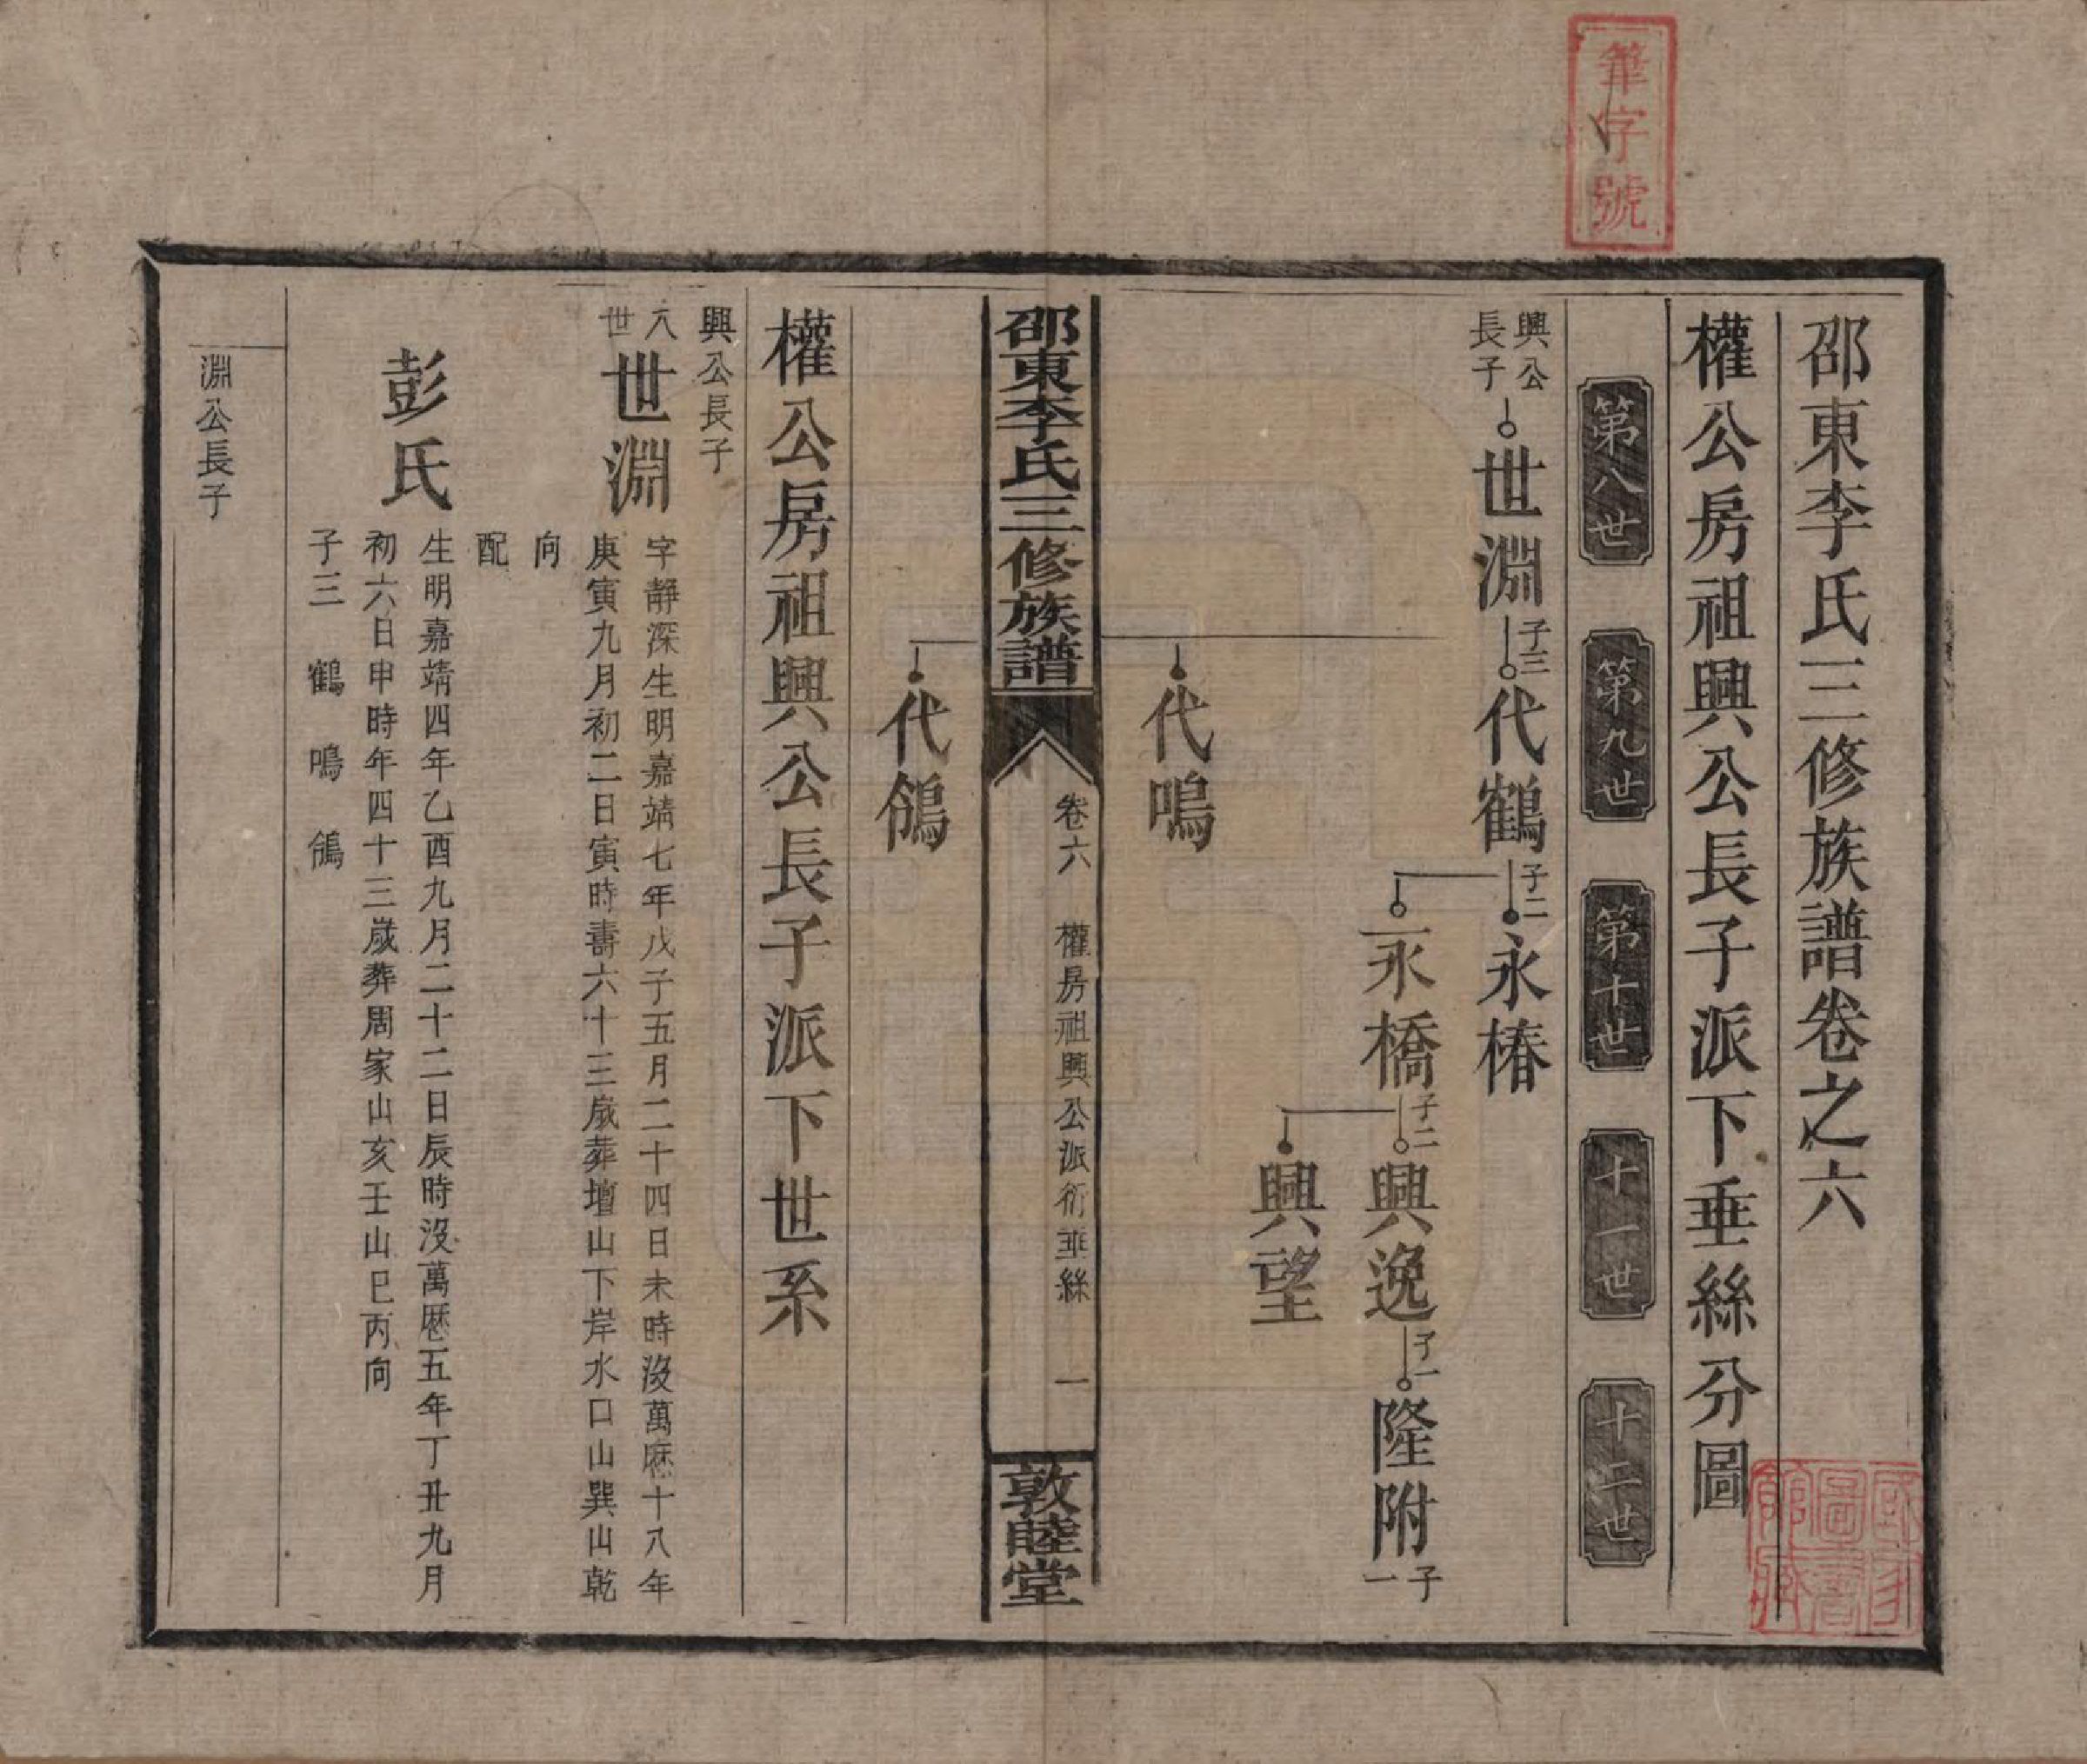 筆字號
邵東李氏三修族譜卷之六
權公房祖興公長子派下垂絲分圖
第八世
第九世
第十世
十一世
十二世
興公長子
世淵
子三
代鶴
子二
永椿
永橋
子二
興逸
子一
隆附
子一
興望
代鳴
邵東李氏三修族譜
卷六
權房祖興公派衍垂絲
一
敦睦堂
代鴿
權公房祖興公長子派下世系
興公長子
八世
世淵
字靜深生明嘉靖七年戊子五月二十四日未時沒萬厯十八年
庚寅九月初二日寅時壽六十三歲葬壇山下岸水口山巽山乾
向
配
彭氏
生明嘉靖四年乙酉九月二十二日辰時沒萬厯五年丁丑九月
初六日申時年四十三歲葬周家山亥壬山巳丙向
子三 鶴 鳴 鴿
淵公長子